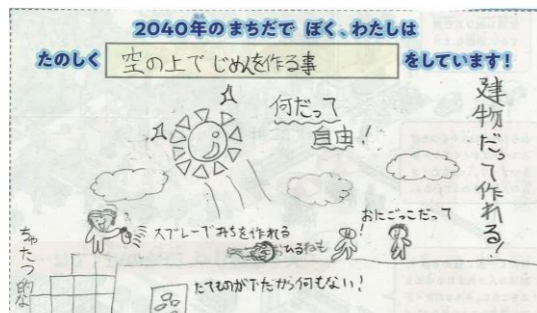 2040年のまちだで ぼく、わたしは
たのしく 空の上で じめんを作る事 をしています!
何だって
自由!
建物だって作れる!
スプレーで道を作れる
ひるねも
おにごっこだって
ちゃたつ的な
たてものが下だから何もない!